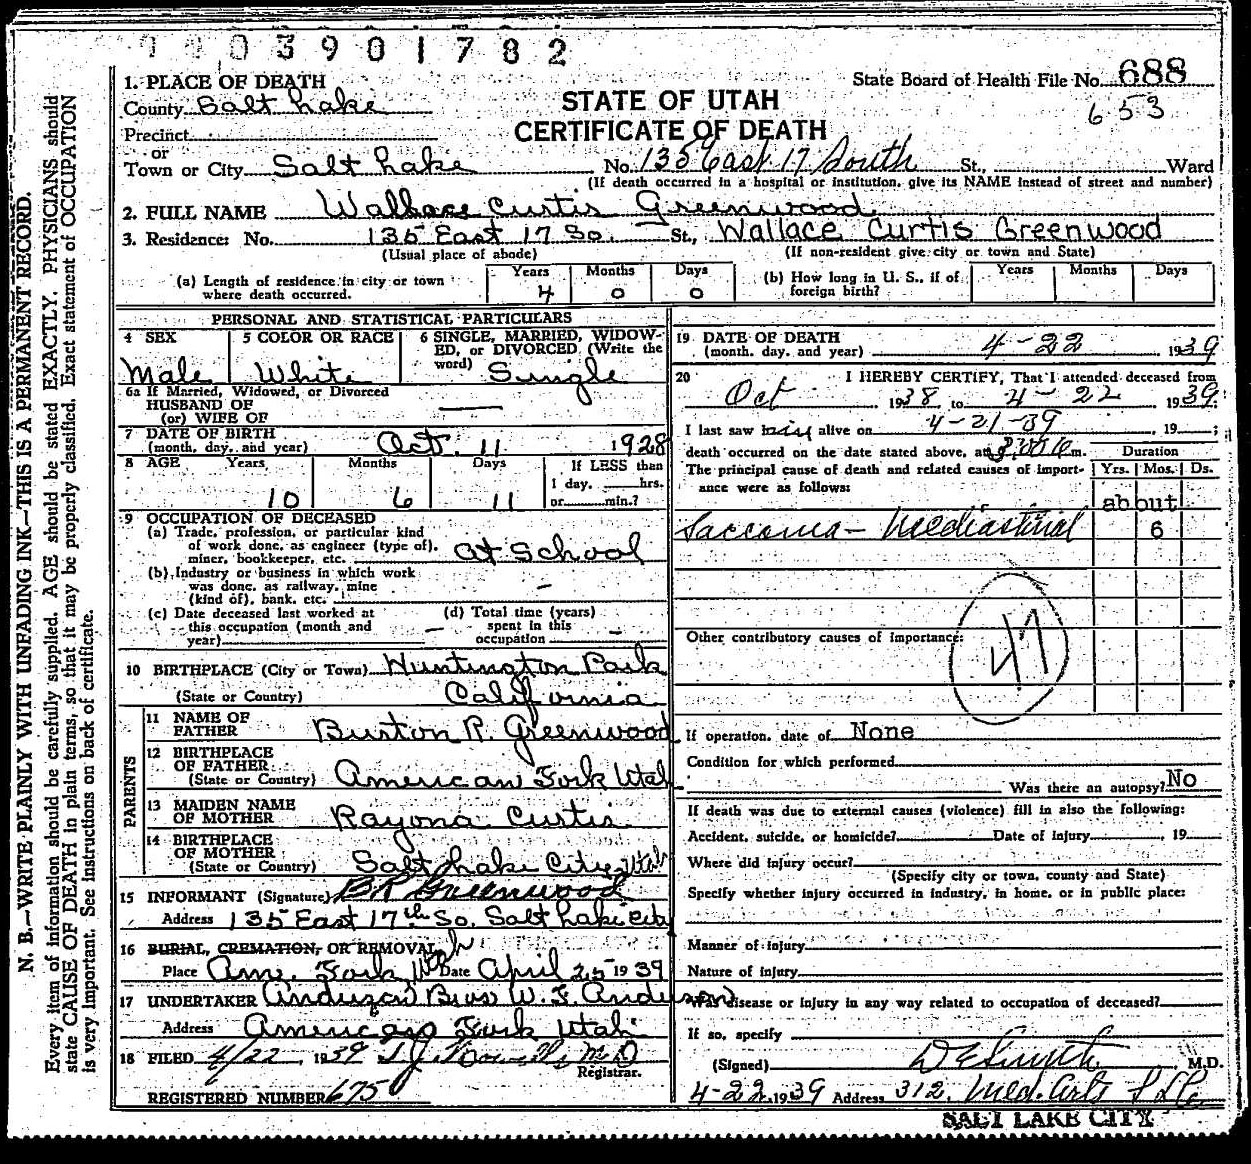 0 0 0 3 9 0 1 7 8 2
1. PLACE OF DEATH
County Salt Lake
Precinct
or
Town or City Salt Lake
State Board of Health File No. 688
653
STATE OF UTAH
CERTIFICATE OF DEATH
No. 135 East 17 South St., Ward
(If death occurred in a hospital or institution, give its NAME instead of street and number)
2. FULL NAME Wallace Curtis Greenwood
3. Residence: No. 135 East 17 So. St., Wallace Curtis Greenwood
(Usual place of abode) (If non-resident give city or town and State)
(a) Length of residence in city or town where death occurred. Years 4 Months 0 Days 0
(b) How long in U. S., if of foreign birth? Years Months Days
PERSONAL AND STATISTICAL PARTICULARS
4 SEX Male
5 COLOR OR RACE White
6 SINGLE, MARRIED, WIDOWED, or DIVORCED, (Write the word) Single
6a If Married, Widowed, or Divorced
HUSBAND OF
(or) WIFE OF
7 DATE OF BIRTH
(month, day, and year) Oct. 11 1928
8 AGE Years 10 Months 6 Days 11 If LESS than 1 day, hrs. or min.?
9 OCCUPATION OF DECEASED
(a) Trade, profession, or particular kind
of work done, as engineer (type of),
miner, bookkeeper, etc. At School
(b) Industry or business in which work
was done, as railway, mine
(kind of), bank, etc. –
(c) Date deceased last worked at
this occupation (month and
year) –
(d) Total time (years)
spent in this
occupation –
10 BIRTHPLACE (City or Town) Huntington Park
(State or Country) California
PARENTS
11 NAME OF
FATHER Burton R. Greenwood
12 BIRTHPLACE
OF FATHER
(State or Country) American Fork Utah
13 MAIDEN NAME
OF MOTHER Rayona Curtis
14 BIRTHPLACE
OF MOTHER
(State or Country) Salt Lake City, Utah
15 INFORMANT (Signature) B R Greenwood
Address 135 East 17th So. Salt Lake City
16 BURIAL, CREMATION, OR REMOVAL
Place Am. Fork Utah Date April 25 1939
17 UNDERTAKER Anderson Bros W. F. Anderson
Address American Fork Utah
18 FILED 4/22 1939 T J Howells M D
Registrar.
REGISTERED NUMBER 675
19 DATE OF DEATH
(month, day, and year) 4-22 1939
20 I HEREBY CERTIFY, That I attended deceased from
Oct 1938 to 4-22 1939
I last saw him alive on 4-21-39, 19 ;
death occurred on the date stated above, at m.
The principal cause of death and related causes of importance were as follows:
Duration
Yrs. Mos. Ds.
about
Sarcoma – Mediastinal 6
Other contributory causes of importance:
47
If operation, date of None
Condition for which performed
Was there an autopsy? No
If death was due to external causes (violence) fill in also the following:
Accident, suicide, or homicide? Date of injury , 19
Where did injury occur?
(Specify city or town, county and State)
Specify whether injury occurred in industry, in home, or in public place:
Manner of injury
Nature of injury
Was disease or injury in any way related to occupation of deceased?
If so, specify
(Signed) D E Smith M.D.
4-22 1939 Address 312 Med. Arts S L C
SALT LAKE CITY
N. B.—WRITE PLAINLY WITH UNFADING INK—THIS IS A PERMANENT RECORD.
Every item of information should be carefully supplied. AGE should be stated EXACTLY. PHYSICIANS should
state CAUSE OF DEATH in plain terms, so that it may be properly classified. Exact statement of OCCUPATION
is very important. See instructions on back of certificate.